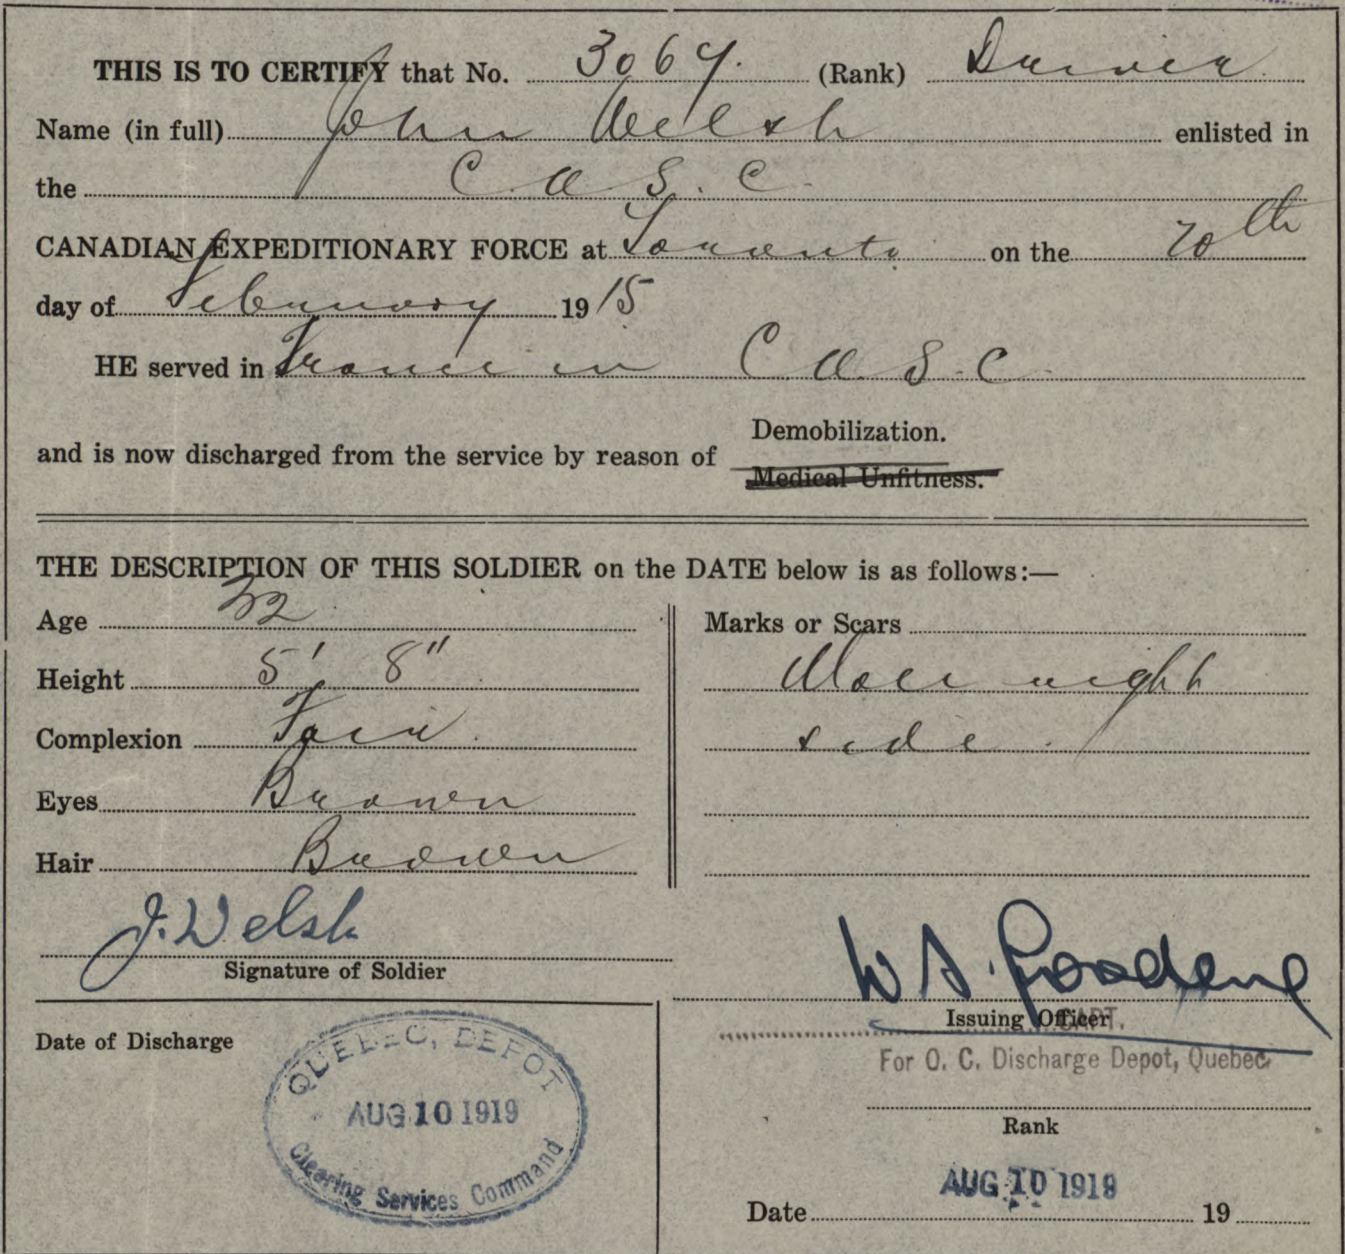 THIS IS TO CERTIFY that No. 3067. (Rank) Driver.
Name (in full) John Welsh enlisted in
the C. A. S. C.
CANADIAN EXPEDITIONARY FORCE at Toronto on the 20th
day of February 1915
HE served in France in C A. S. C.
Demobilization.
and is now discharged from the service by reason of
Medical Unfitness.
THE DESCRIPTION OF THIS SOLDIER on the DATE below is as follows:—
Age 32
Height 5' 8"
Complexion Fair.
Eyes Brown
Hair Brown
Marks or Scars
Mole right
side.
J. Welsh
Signature of Soldier
W S.
Issuing Officer
CAPT.
For O. C. Discharge Depot, Quebec
Rank
Date AUG 10 1919 19
Date of Discharge
QUEBEC, DEPOT
AUG 10 1919
Clearing Services Command